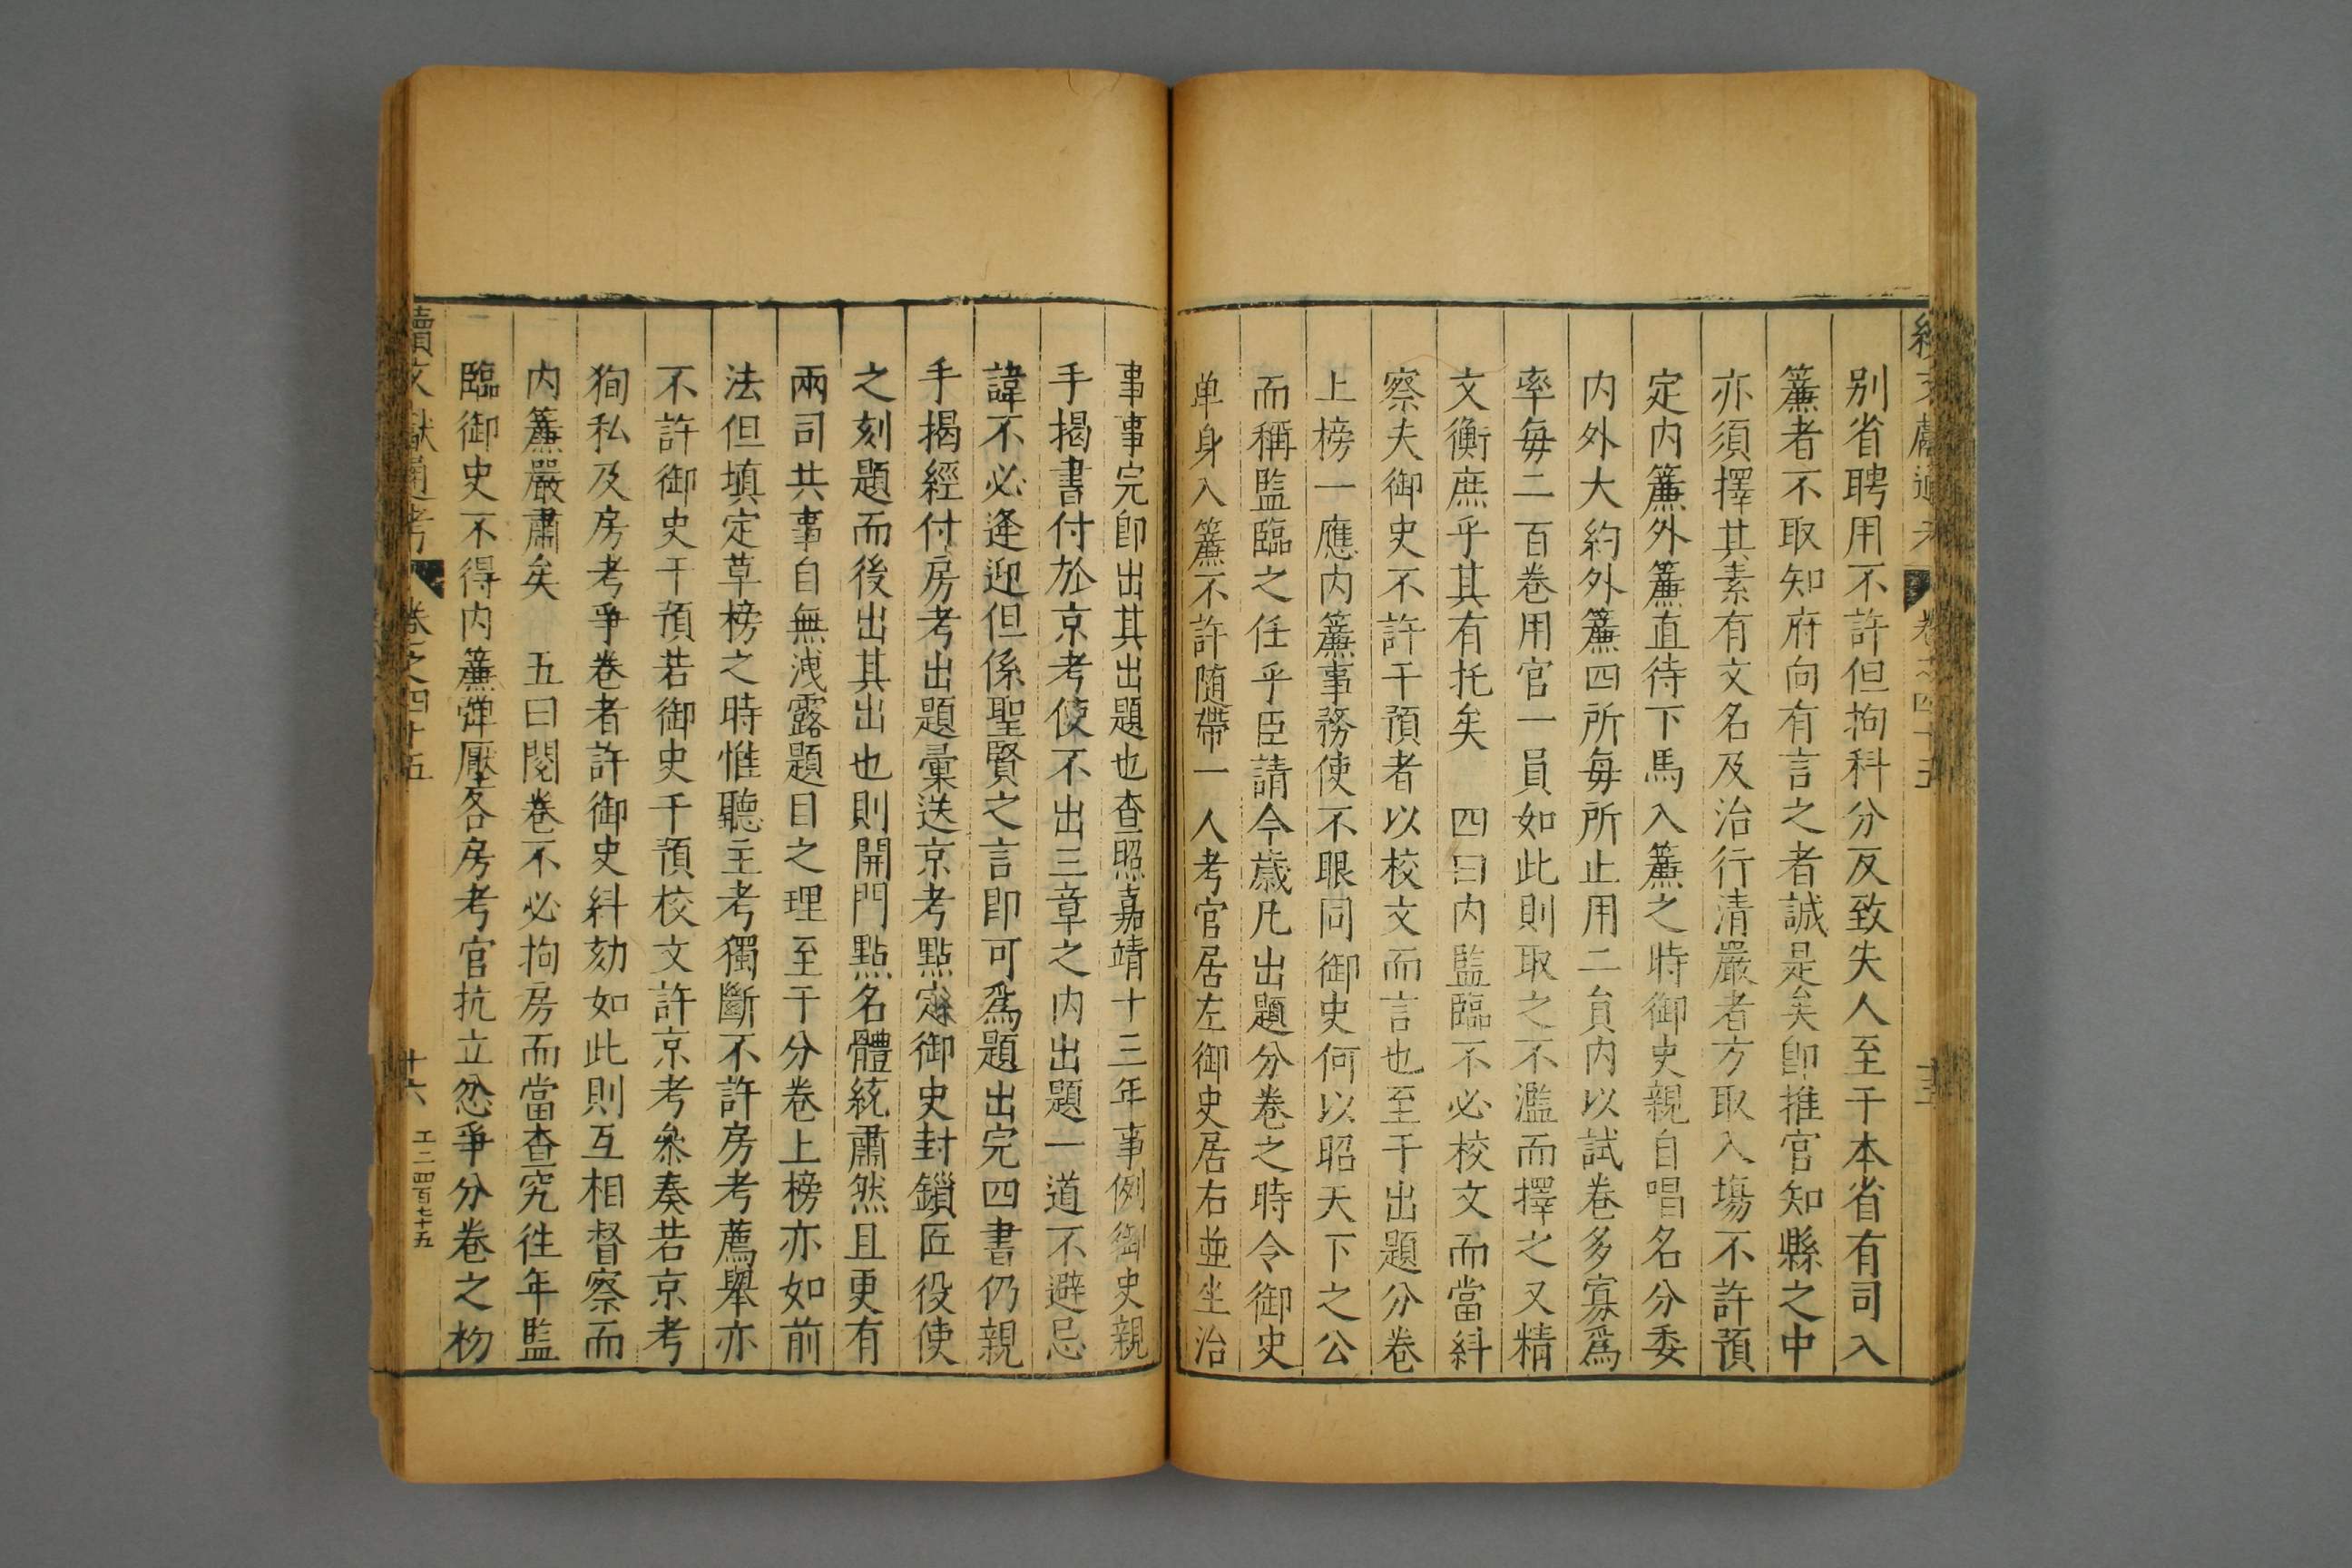 續文獻通考 卷之四十五 十五
别省聘用不許但拘科分反致失人至于本省有司入
簾者不取知府向有言之者誠是矣卽推官知縣之中
亦須擇其素有文名及治行清嚴者方取入塲不許預
定内簾外簾直待下馬入簾之時御史親自唱名分委
内外大約外簾四所每所止用二員内以試卷多寡爲
率每二百卷用官一員如此則取之不濫而擇之又精
文衡庶乎其有托矣　四曰内監臨不必校文而當糾
察夫御史不許干預者以校文而言也至于出題分卷
上榜一應内簾事務使不眼同御史何以昭天下之公
而稱監臨之任乎臣請今歲凡出題分卷之時令御史
单身入簾不許随帶一人考官居左御史居右並坐治
事事完卽出其出題也查照嘉靖十三年事例御史親
手揭書付於京考使不出三章之内出題一道不避忌
諱不必逢迎但係聖賢之言卽可爲題出完四書仍親
手揭經付房考出題彙送京考點定御史封鎖匠役使
之刻題而後出其出也則開門點名體統肅然且更有
兩司共事自無洩露題目之理至于分卷上榜亦如前
法但填定草榜之時惟聽主考獨斷不許房考薦舉亦
不許御史干預若御史干預校文許京考叅奏若京考
狥私及房考爭卷者許御史糾劾如此則互相督察而
内簾嚴肅矣　五曰閱卷不必拘房而當查究徃年監
臨御史不得内簾彈壓各房考官抗立忿爭分卷之初
續文獻通考 卷之四十五 十六 工二四百七十五